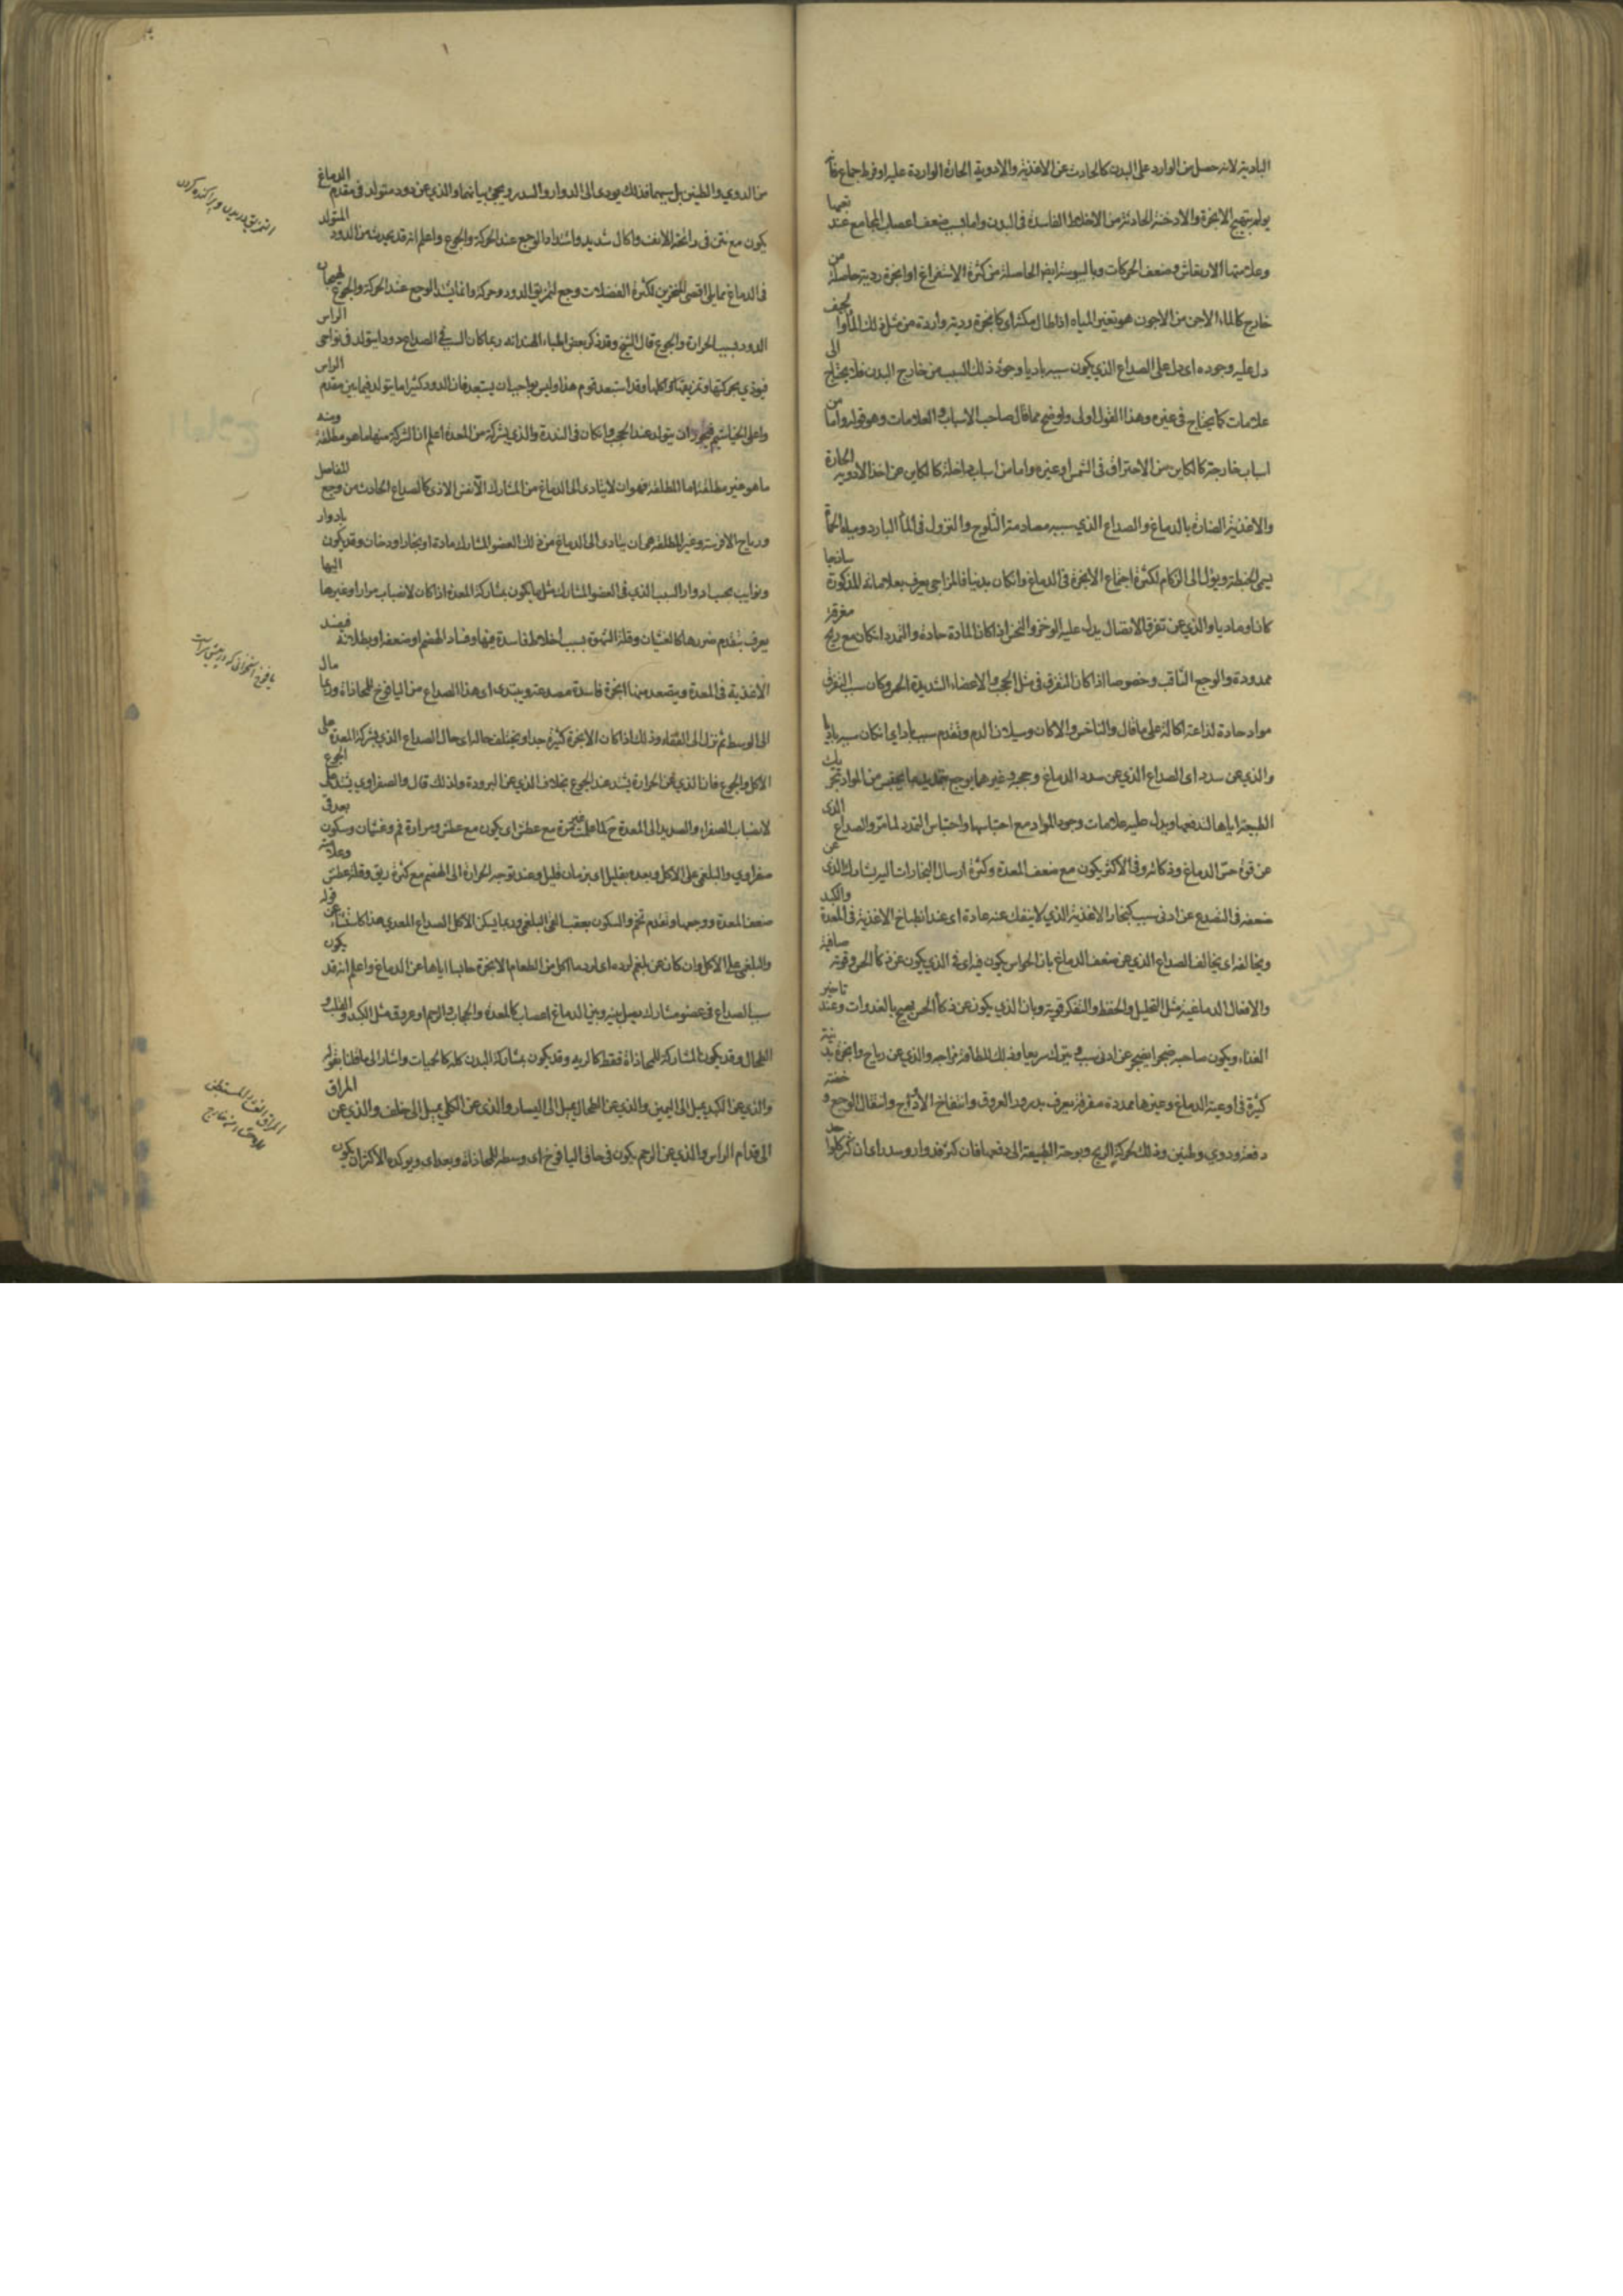 البادية لانه حصل من الوارد على البدن كالحادث عن الاغذية والادوية الحارة الواردة عليه او فرط جماع فانه
يولم بتهييج الابخرة والادخنة الحادثة من الاخلاط الفاسدة في البدن واما بسبب ضعف اعصاب المجامع عند
وعلامتها الارتعاش وضعف الحركات وباليبوسة ايضا الحاصلة من كثرة الاستفراغ او ابخرة ردية حاصلة من
خارج كالماء الاجن من الاجون هو تغير المياه اذا طال مكثها اي كابخرة ردية واردة من مثل ذلك الماء او الجيف
دل عليه وجوده اي دل على الصداع الذي يكون سببه باديا وجود ذلك السبب من خارج البدن فلا يحتاج الى
علامات كما يحتاج في غيره وهذا القول اولى واوضح مما قال صاحب الاسباب والعلامات وهو قوله واما من
اسباب خارجة كالكاين من الاحتراق في الشمس او غيره واما من اسباب داخلة كالكاين عن اخذ الادوية الحارة
والاغذية الضارة بالدماغ والصداع الذي سببه مصادمة الثلوج والنزول في الماء البارد ومياه الحمأة
يسمى الخبطة ويؤل الى الزكام لكثرة اجتماع الابخرة في الدماغ وان كان بدنيا فالمزاجي يعرف بعلاماته المذكورة ساذجا
كان او ماديا والذي عن تفرق الاتصال يدل عليه الوخز والنخس اذا كان المادة حادة والتمدد ان كان مع ريح مفرقة
ممددة والوجع الثاقب وخصوصا اذا كان التفرق في مثل الحجب والاعضاء الشديدة الحس وكان سبب التفرق
مواد حادة لذاعة اكالة على ما قال والناخس والاكال وسيلان الدم وتقدم سبب باد اي ان كان سببه باديا
والذي عن سدد اي الصداع الذي عن سدد الدماغ وحجبه وغيرهما يوجع بتمديد ما يحتبس من المواد بتحريك
الطبيعة اياها لتدفعها ويدل عليه علامات وجود المواد مع احتباسها واحتباس التمدد لما مر والصداع الذي
عن قوة حس الدماغ وذكائه وفي الاكثر يكون مع ضعف المعدة وكثرة ارسال البخارات اليه يشارك الذي عن
ضعفه في التصدع عن ادنى سبب كبخار الاغذية الذي لا ينفك عنه عادة اي عند انطباخ الاغذية في المعدة والكبد
ويخالفه اي يخالف الصداع الذي عن ضعف الدماغ بان الحواس يكون فيه اي في الذي يكون عن ذكاء الحس وقوته صافية
والافعال الدماغية مثل التخيل والحفظ والتفكر قوية وبان الذي يكون عن ذكاء الحس يهيج بالغدوات وعند تاخير
الغذاء ويكون صاحبه ضجرا يضجر عن ادنى سبب ويترك سريعا وذلك للطافة مزاجه والذي عن رياح وابخرة بدنية
كثيرة في اوعية الدماغ وغيرها ممددة مفرقة يعرف بدرور العروق وانتفاخ الاوداج وانتقال الوجع وخفته
دفعة ودوي وطنين وذلك لحركة الريح وبوجه الطبيعة الى دفعها فان كثر فدوار وسدر اي ان كثر كل واحد
من الدوي والطنين بل سببهما فذلك يودى الى الدوار والسدر ويجئ بيانهما والذي عن دود متولد في مقدم الدماغ
يكون مع نتن في رائحة الانف واكال شديد واشتداد الوجع عند الحركة والجوع واعلم انه قد يحدث من الدود المتولد
في الدماغ مما يلي اقصى المنخرين لكثرة الفضلات وجع لتمزيق الدود وحركته وانما يشتد الوجع عند الحركة والجوع لهيجان
الدود بسبب الحرارة والجوع قال الشيخ وقد ذكر بعض اطباء الهند انه ربما كان السبب في الصداع دودا يتولد في نواحى الراس
فيوذي بحركتها وتمزيقها واكلها وقد استبعد قوم هذا وليس بواجب ان يستبعد فان الدود كثيرا ما يتولد فيما بين مقدم الراس
واعلى الخياشيم فيجوز ان يتولد عند الحجب وان كان في الندرة والذي بشركة من المعدة اعلم ان الشركة منها ما هو مطلقة ومنه
ما هو غير مطلقة اما المطلقة فهو ان لا يتادى الى الدماغ من المشارك الا نفس الاذى كالصداع الحادث من وجع المفاصل
ورياح الافرسة وغير المطلقة هي ان يتادى الى الدماغ من ذلك العضو المشارك مادة او بخار او دخان وقد يكون بادوار
ونوايب بحسب ادوار السبب الذي في العضو المشارك مثل ما يكون بمشاركة المعدة اذا كان لانصباب مرار او غيرها اليها
يعرف بتقدم ضررها كالغثيان وقلة الشهوة بسبب اخلاط فاسدة فيها وفساد الهضم او ضعفه او بطلانه فيفسد
الاغذية في المعدة ويتصعد منها ابخرة فاسدة مصدعة ويبتدى اي هذا الصداع من اليافوخ للمحاذاة وربما مال
الى الوسط ثم نزل الى القفاء وذلك اذا كان الابخرة كثيرة جدا ويختلف حاله اي حال الصداع الذي بشركة المعدة على
الاكل والجوع فان الذي عن الحرارة يشتد عند الجوع بخلاف الذي عن البرودة ولذلك قال والصفراوي يشتد على الجوع
لانصباب الصفراء والصديد الى المعدة ح كما علمت غير مرة مع عطش اي يكون مع عطش ومرارة فم وغثيان وسكون بعد قئ
صفراوي والبلغمي على الاكل وبعده بقليل اي بزمان قليل وعند توجه الحرارة الى الهضم مع كثرة ريق وقلة عطش وعلامة
ضعف المعدة ووجعها وتقدم تخم والسكون بعقب القئ البلغمي وربما يسكن الاكل الصداع المعدي هذا كاستثناء عن قوله
والبلغمي على الاكل وان كان عن بلغم لرده اي لرد ما اكل من الطعام الابخرة حابسا اياها عن الدماغ واعلم انه قد يكون
سبب الصداع في عضو مشارك يصل بينه وبين الدماغ اعصاب كالمعدة والحجاب والرحم او عروق مثل الكبد والقلب و
الطحال وقد يكون المشاركة للمحاذاة فقط كالريه وقد يكون بمشاركة البدن كله كالحميات واشار الى ما قلنا بقوله
والذي عن الكبد يميل الى اليمين والذي عن الطحال يميل الى اليسار والذي عن الكلي يميل الى خلف والذي عن المراق
الى قدام الراس والذي عن الرحم يكون في حاق اليافوخ اي وسطه للمحاذاة وبعد اي ويوكده الاكثر ان يكون